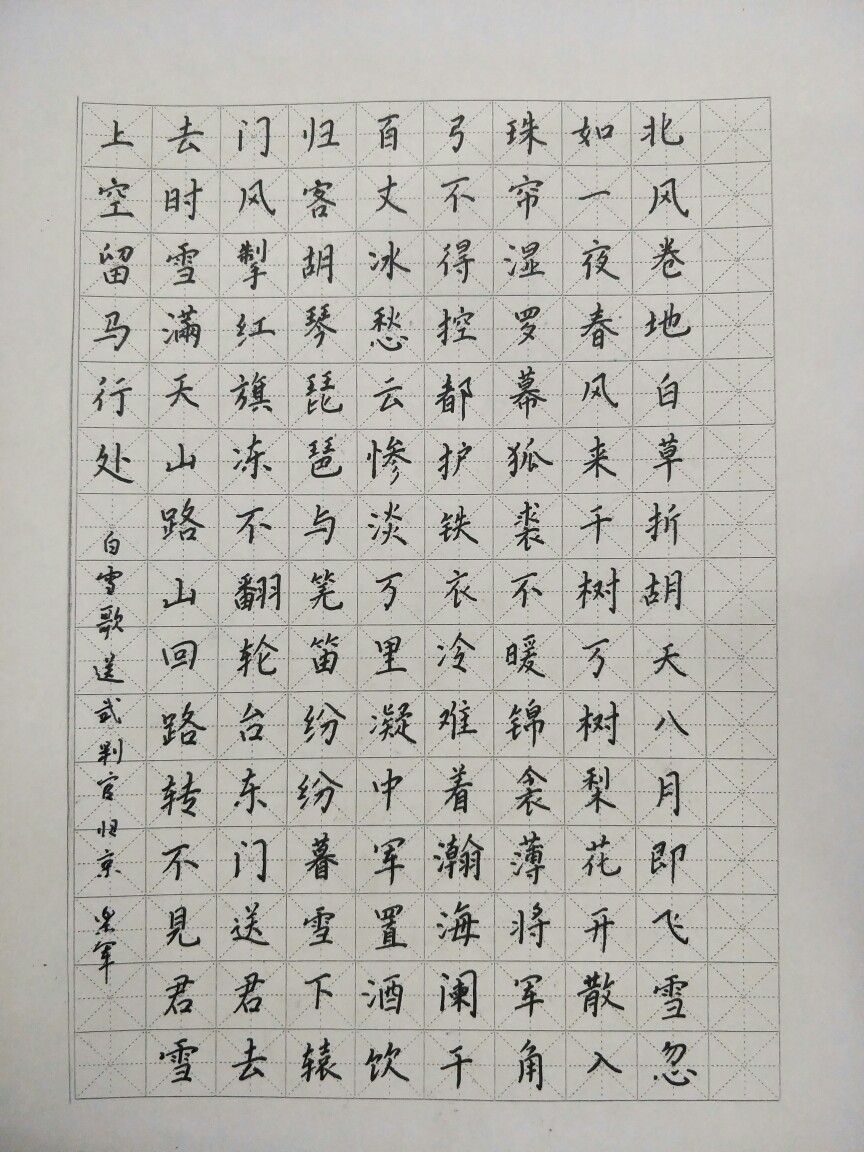 北风卷地白草折胡天八月即飞雪忽
如一夜春风来千树万树梨花开散入
珠帘湿罗幕狐裘不暖锦衾薄将军角
弓不得控都护铁衣冷难着瀚海阑干
百丈冰愁云惨淡万里凝中军置酒饮
归客胡琴琵琶与羌笛纷纷暮雪下辕
门风掣红旗冻不翻轮台东门送君去
去时雪满天山路山回路转不見君雪
上空留马行处
白雪歌送武判官归京